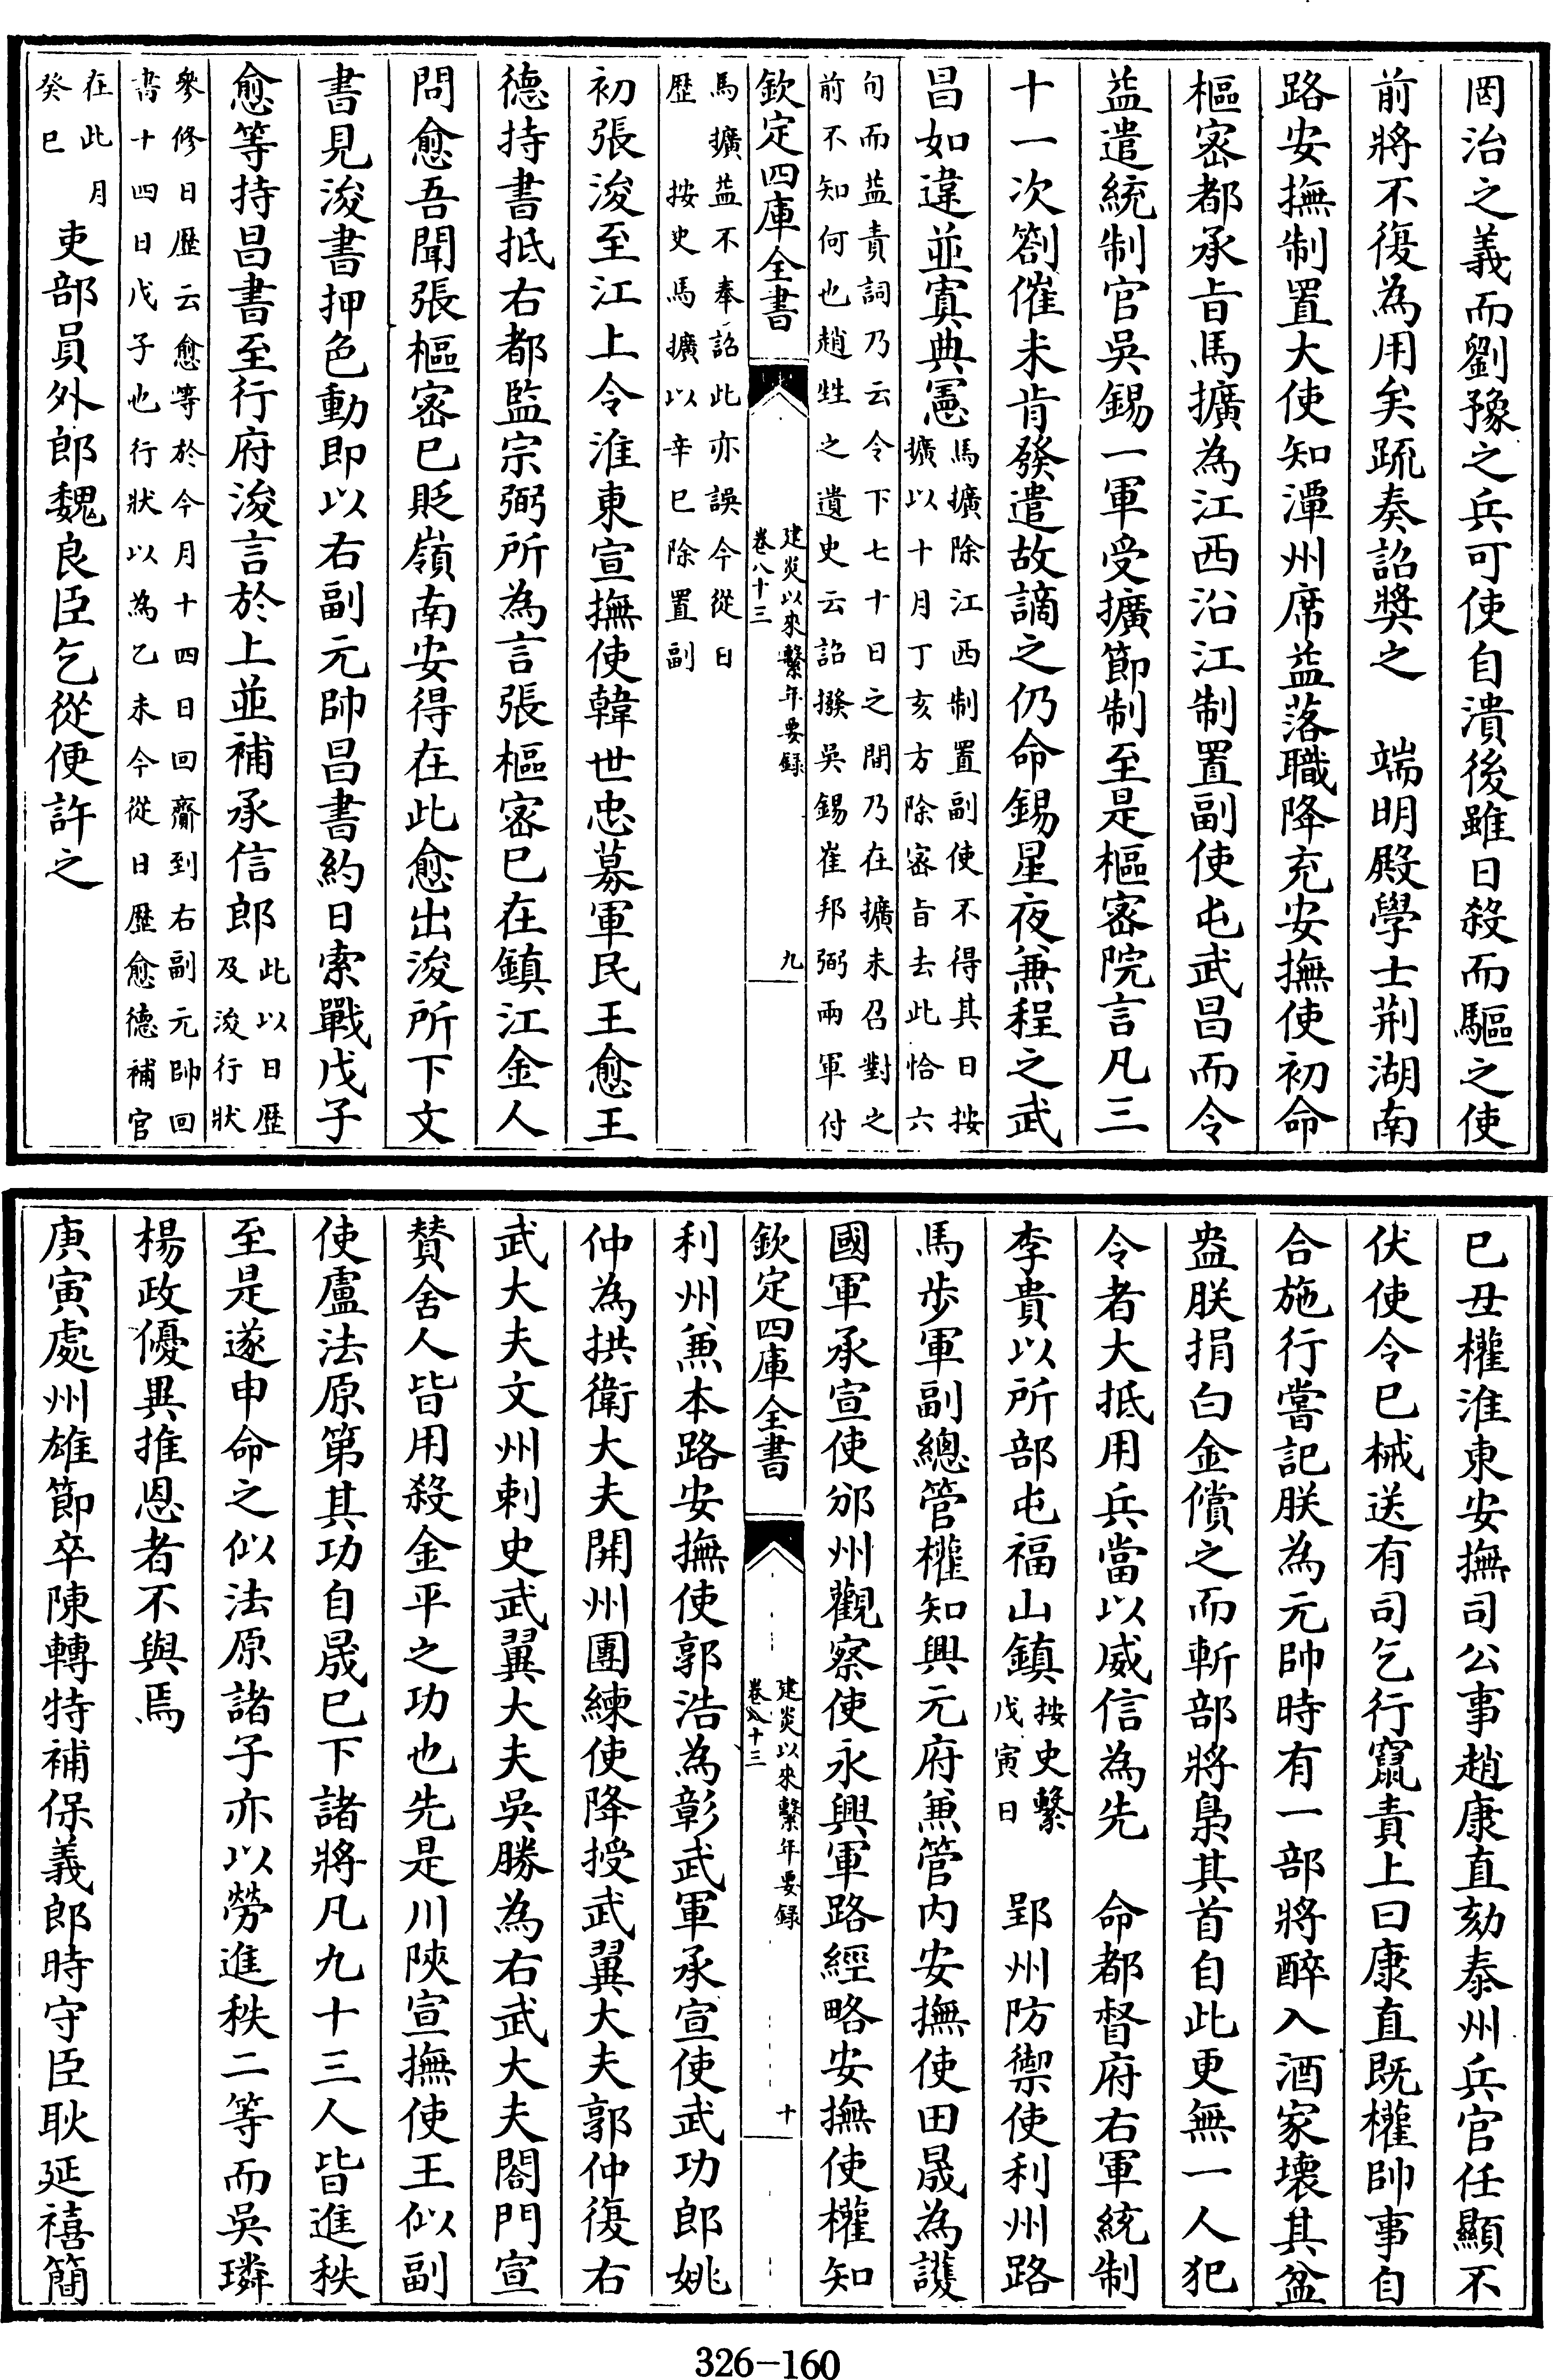 罔治之義而劉豫之兵可使自潰後雖日殺而驅之使
前將不復為用矣疏奏詔奬之　端明殿學士荆湖南
路安撫制置大使知潭州席益落職降充安撫使初命
樞宻都承旨馬擴為江西沿江制置副使屯武昌而令
益遣統制官吳錫一軍受擴節制至是樞宻院言凡三
十一次劄催未肯發遣故謫之仍命錫星夜兼程之武
昌如違並寘典憲馬擴除江西制置副使不得其日按
擴以十月丁亥方除宻旨去此恰六
旬而益責詞乃云令下七十日之間乃在擴未召對之
前不知何也趙甡之遺史云詔撥吳錫崔邦弼兩軍付
馬擴益不奉詔此亦誤今從日
歴　按史馬擴以辛巳除置副
欽定四庫全書
建炎以來繫年要録
卷八十三
九
初張浚至江上令淮東宣撫使韓世忠募軍民王愈王
德持書抵右都監宗弼所為言張樞宻已在鎮江金人
問愈吾聞張樞宻已貶嶺南安得在此愈出浚所下文
書見浚書押色動即以右副元帥昌書約日索戰戊子
愈等持昌書至行府浚言於上並補承信郎此以日歴
及浚行狀
參修日歴云愈等於今月十四日回齎到右副元帥回
書十四日戊子也行狀以為乙未今從日歴愈德補官
在此月
癸巳
吏部員外郎魏良臣乞從便許之
已丑權淮東安撫司公事趙康直劾泰州兵官任顯不
伏使令已械送有司乞行竄責上曰康直既權帥事自
合施行嘗記朕為元帥時有一部將醉入酒家壊其盆
盎朕捐白金償之而斬部將梟其首自此更無一人犯
令者大抵用兵當以威信為先　命都督府右軍統制
李貴以所部屯福山鎮按史繫
戊寅日
郢州防禦使利州路
馬步軍副總管權知興元府兼管内安撫使田晟為護
國軍承宣使邠州觀察使永興軍路經略安撫使權知
欽定四庫全書
建炎以來繫年要録
卷八十三
十
利州兼本路安撫使郭浩為彰武軍承宣使武功郎姚
仲為拱衛大夫開州團練使降授武翼大夫郭仲復右
武大夫文州刺史武翼大夫吳勝為右武大夫閤門宣
贊舍人皆用殺金平之功也先是川陜宣撫使王似副
使盧法原第其功自晟已下諸將凡九十三人皆進秩
至是遂申命之似法原諸子亦以勞進秩二等而吳璘
楊政優異推恩者不與焉
庚寅處州雄節卒陳轉特補保義郎時守臣耿延禧簡
326-160